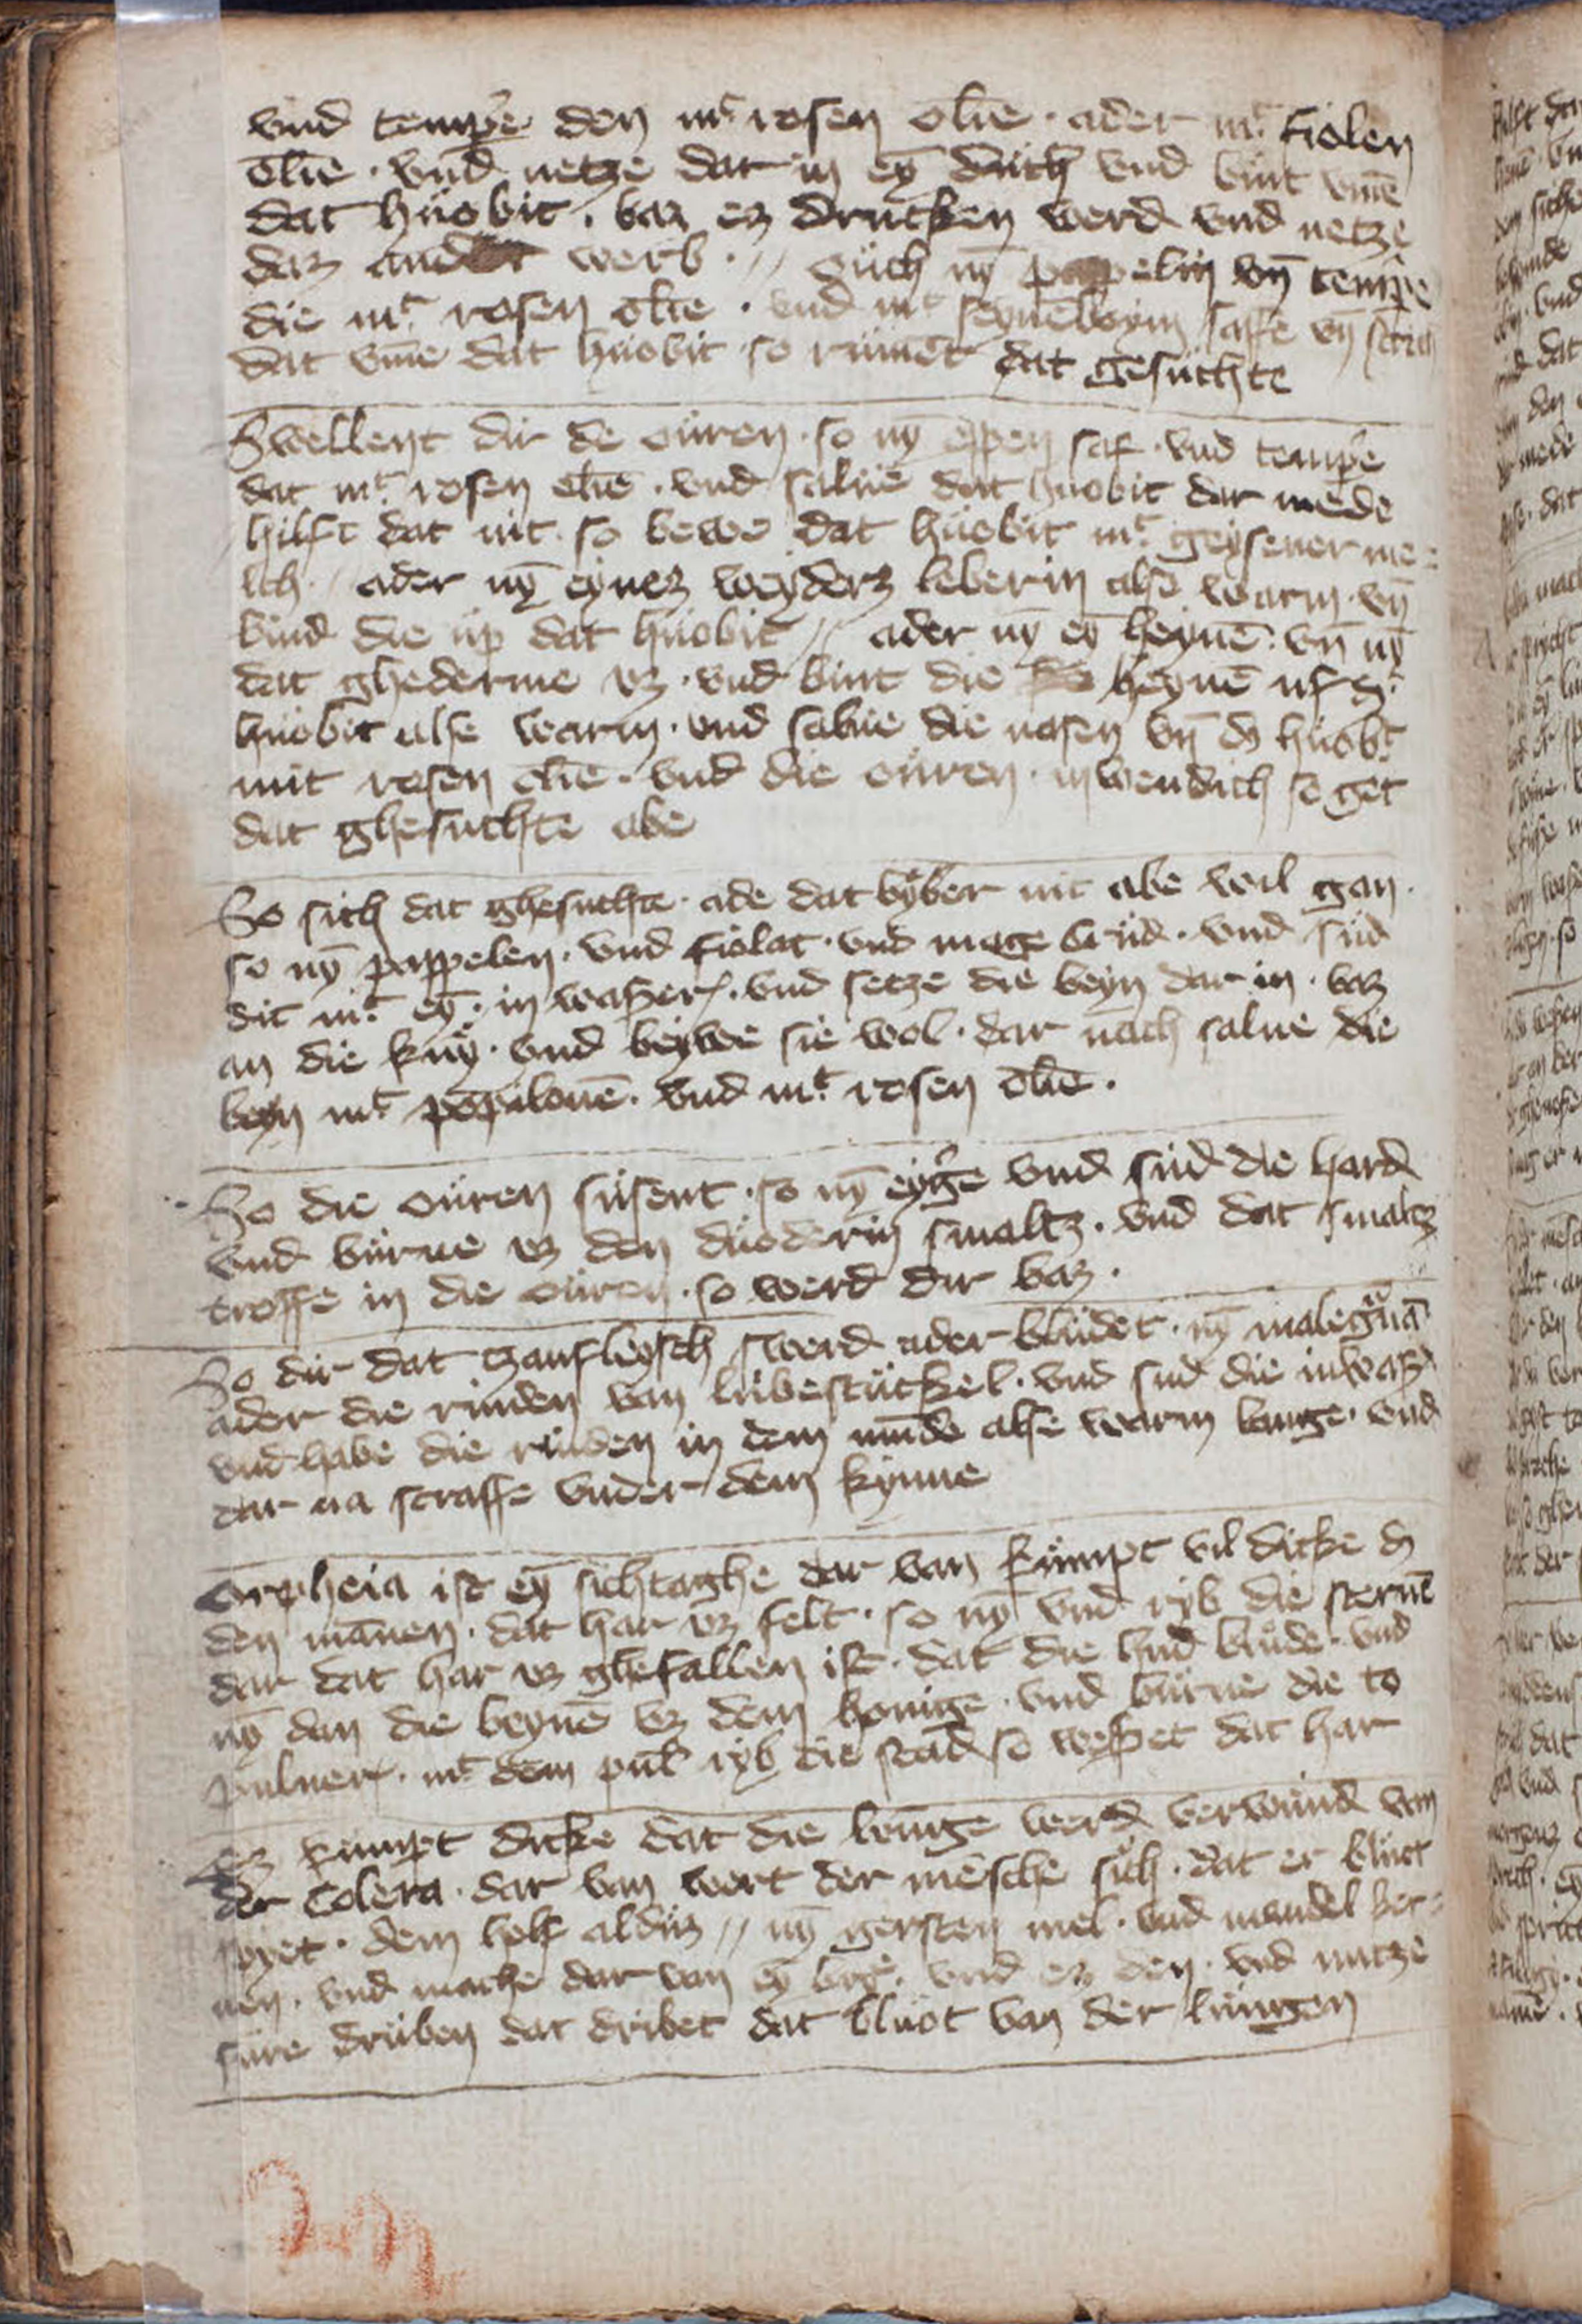 vnd tempe͛ den mͭ rosen olie · ader mͭ fiolen
olie · vnd netze dat in ey̅ düch vnd bint vm̅e
dat hüobit · baz ez drucken werd vnd netze
daz ander werb · // Ouch ny̅ pappelin vn̅ tempe͛
die mͭ rosen olie · vnd mͭ saffe vn̅
dat vm̅e dat hüobit so rümet dat gesüchte
Swellent dir de oüren · so ny̅ eppen saf · vnd tempe͛
dat mͭ rosen olie · vnd salue dat hüobit dar mede
hilft dat nit · so bewe dat hüobit mͭ geysener me=
lch // ader ny̅ eynez weyderz leberin alse warm · vn̅
bind die up dat hüobit // ader ny̅ ey̅ heyne̅ · vn̅ ny̅
dat ghederme vz · vnd bint die heyne̅ uf dͭ
hüobit alse warm · vnd salue die nasen vn̅ dz hüobͭ
mit rosen olie · vnd die oüren inwendich so get
dat ghesuchte abe
So sich dat ghesuchte · ade dat byber nit abe wil gan ·
so ny̅ pappelen · vnd fiolat · vnd mage krüd · vnd süd
dit mͭ ey̅ · in wasser · vnd setze die beyn dar in · baz
an die kny · vnd beywe sie wol · dar nach salue die
beyn mͭ popilone̅ · vnd mͭ rosen olie ·
So die oüren süsent · so ny̅ eyg͛e vnd süd die hard
vnd bürne vz den düoderin smaltz · vnd dat smaltz
troffe in die oüren · so werd dir baz ·
So dir dat tzanfleysch swerd ader blüdet · ny̅ malegͣna̅
ader die rinden van lübestückel · vnd sud die in wass͛
vnd habe die rinden in dem mu̅de alse warm lange · vnd
dar na straffe vnder dem kynne
Orpheia ist ey̅ sichtaghe dar van kümpt vil dicke dz
den ma̅nen · dat har vz felt · so ny̅ vnd ryb die sterne̅
dar dat har vz ghefallen ist · dat die hud blüde · vnd
ny̅ dan die beyne̅ vz dem honige · vnd bürne die to
puluer · mͭ dem pul͛ ryb die stad so wesset dat har
Ez kümpt dicke dat die lunge werd verwünd van
der Colera · dar van wert der me̅sche sich · dat er blüct
spyet · dem helf aldüz // ny̅ gersten mel · vnd mandel ker=
nen · vnd mache dar van ey̅ brye · vnd ez den · vnd nutze
süre drüben dat dribet dat blüot van der lüngen